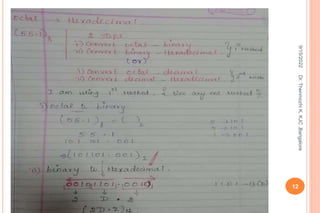 Octal to Hexadecimal.
(55.1)8
2 steps
i) Convert octal - binary
ii) Convert binary - Hexadecimal
} 1st method
(OR)
i) Convert octal - decimal
ii) Convert decimal - Hexadecimal
I am using 1st method. use any one method
i) Octal to binary
(55.1)8 = ( )2
5 → 101
5 → 101
1 → 001
5 5 . 1
101 101 . 001
=(101101.001)2
ii) binary to Hexadecimal
00101101.0010
1101 - 13(D)
2 D . 2
(2D.2)16
9/15/2022
Dr. Thanmuzhi K, KJC, Bangalore
12